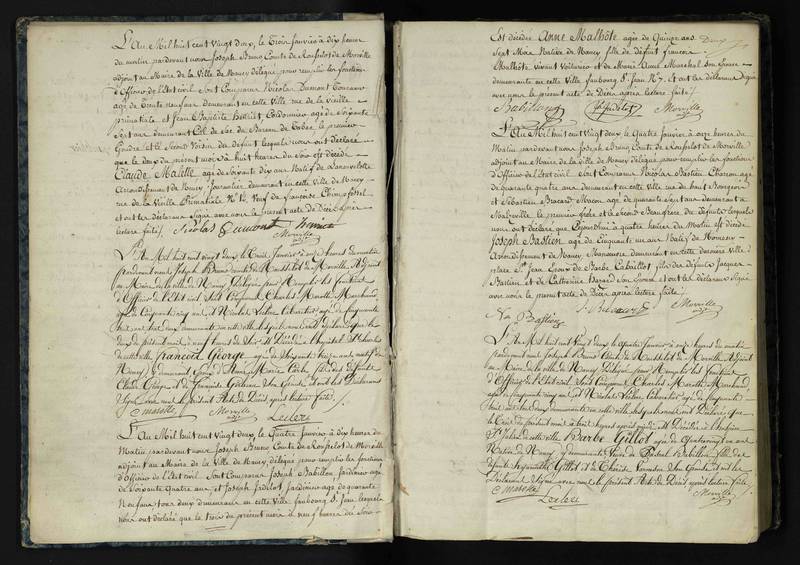 L'An Mil huit cent Vingt Deux, le Trois Janvier à dix heures
du matin pardevant nous Joseph Bruno Comte de Rouffelot de Morville
adjoint au Maire de la Ville de Nancy délégué pour remplir les fonctions
d'Officier de l'Etat civil, Sont Comparus Nicolas Dumont
agé de Trente neuf ans demeurant en cette Ville rue de la Vieille
primatiale et Jean Baptiste Cordonnier agé de Soixante
Sept ans demeurant Cul de Sac du Baron de le premier
Gendre et le Second Voisin du défunt lesquels nous ont déclaré
que le deux du présent mois à huit heures du Soir est décédé
Claude Malelle agé de Soixante dix ans Natif de
Arrondissement de Nancy, Journalier demeurant en cette Ville de Nancy
rue de la Vieille Primatiale No Veuf de françoise
et ont les déclarans Signé avec nous le présent acte de Décès après
lecture faite /. Nicolas Dumont
Morville
adj.
L'An Mil huit cent vingt deux, le Trois Janvier à onze heures du matin
pardevant nous Joseph Bruno Comte de Rouffelot de Morville, Adjoint
au Maire de la Ville de Nancy Délégué pour Remplir les fonctions
d'Officier de l'Etat civil, Sont Comparus Charles Marotte Marchand
agé de Cinquante cinq ans, et Nicolas Leclerc agé de Cinquante
huit ans tous deux demeurants en cette ville lesquels nous ont déclaré que le
deux du présent mois, à neuf heures du Soir est Décédé à l'hopital St Charles
de cette ville François George agé de Soixante treize ans natif de
Nancy, y demeurant Epoux d'Anne Marie fils des défunts
Claude George et de Françoise Son Epouse et ont les Déclarans
Signé avec nous le présent Acte de Décès après lecture faite /.
C marotte Morville Leclerc
adj.
L'An Mil huit cent Vingt deux, le Quatre Janvier à dix heures du
Matin pardevant nous Joseph Bruno Comte de Rouffelot de Morville
adjoint au Maire de la Ville de Nancy délégué pour remplir les fonctions
d'Officier de l'Etat civil Sont Comparus Joseph Babillon Jardinier agé
de Soixante Quatre ans, et Joseph Fidelot, Jardinier agé de quarante
Neuf ans tous deux demeurans en cette Ville faubourg St Jean lesquels
nous ont déclaré que le trois du présent mois à neuf heures du Soir
Est décédée Anne Malhôte agée de Quinze ans Deux
Sept Mois Native de Nancy fille de défunt françois
Malhôte vivant Voiturier et de Marie Anne Marchal Son Epouse
demeurante en cette Ville faubourg St Jean No 7. Et ont les déclarans Signé
avec nous le présent acte de Décès après lecture faite /.
Babillon J Fidelot Morville
adj.
L'An Mil huit cent Vingt deux, le Quatre Janvier à onze heures du
Matin pardevant nous Joseph Bruno Comte de Rouffelot de Morville
adjoint au Maire de la Ville de Nancy délégué pour remplir les fonctions
d'Officier de l'Etat civil Sont Comparus Nicolas Bastien Charron agé
de quarante quatre ans demeurant en cette Ville rue du haut Bourgeois
et Sébastien Macon agé de quarante Sept ans demeurant à
le premier frère et le Second Beaufrère du défunt lesquels
nous ont déclaré que Cejourdhui à quatre heures du Matin est décédé
Joseph Bastien agé de Cinquante un ans Natif de
Arrondissement de Nancy, demeurant en cette dernière Ville
place St Jean Epoux de Barbe Caboillot fils des défunts Jacques
Bastien et de Catherine Son Epouse Et ont les déclarans Signé
avec nous le présent acte de Décès après lecture faite /.
Nas Bastien Morville
adj.
L'An Mil huit cent Vingt deux, le quatre Janvier à onze heures du matin
pardevant nous Joseph Bruno Comte de Rouffelot de Morville Adjoint
au Maire de la ville de Nancy Délégué pour Remplir les fonctions
d'Officier de l'Etat civil, Sont Comparus Charles Marotte Marchand
agé de Cinquante cinq ans et Nicolas Leclerc agé de Cinquante
huit ans tous deux demeurants en cette ville lesquels nous ont Déclaré que
le Trois du présent mois à huit heures après midi est Décédée à l'hospice
St Julien de cette ville Barbe Gillot agée de
Native de Nancy y demeurante Veuve de fille des
défunts Gillot et de Son Epouse et ont les
Déclarans Signé avec nous le présent Acte de Décès après lecture faite
C marotte Leclerc Morville
adj.